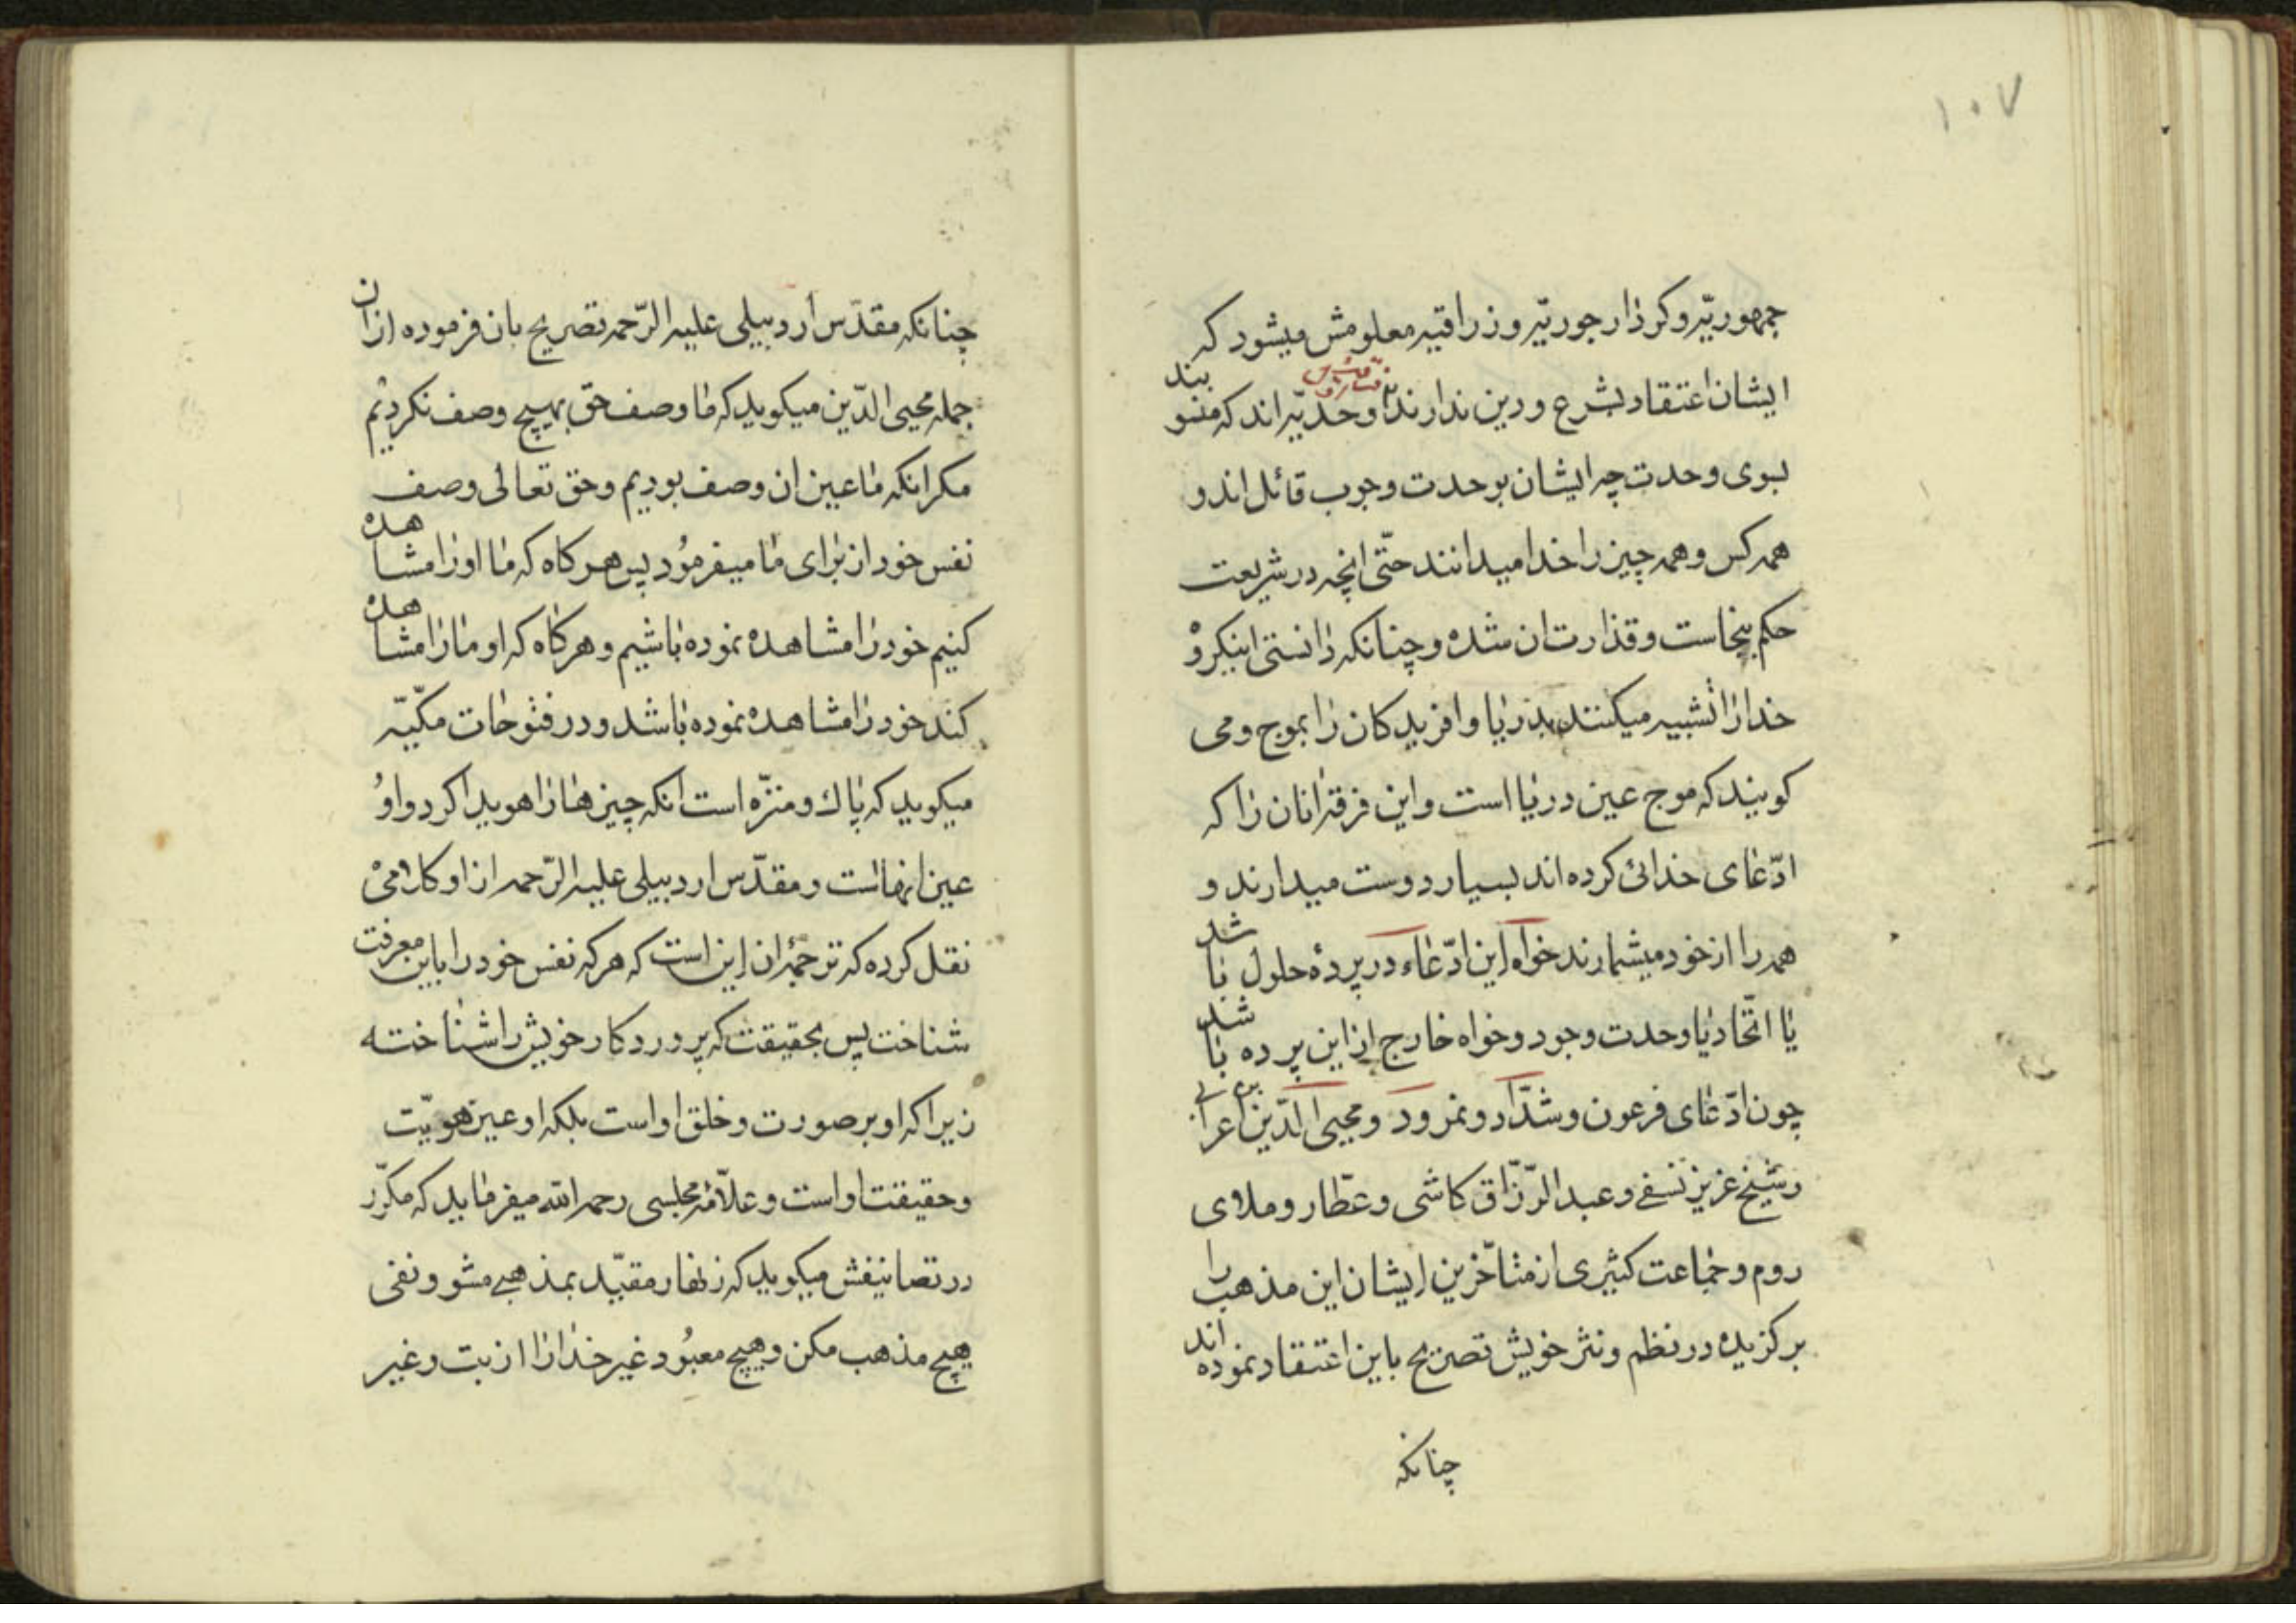 ۱۰۷
جمهوریّه و کردار جوریّه و زراقیه معلومش میشود که
ایشان اعتقاد بشرع و دین ندارند و حدیّه اند که منسو بند
بسوی وحدت چه ایشان بوحدت وجوب قائل اند و
همه کس و همه چیز را خدا میدانند حتّی انچه در شریعت
حکم بنجاست و قذارت ان شده و چنانکه دانستی اینکروْ
خدا را تشبیه میکنند بدریا و افریدکان را بموج و می
کویند که موج عین دریا است و این فرقه انان را که
ادّعای خدائی کرده اند بسیار دوست میدارند و
همه را از خود میشمارند خواه این ادّعاء در پردهٔ حلول با شد
یا اتّحاد یا وحدت وجود و خواه خارج از این پرده با شد
چون ادّعای فرعون و شدّاد و نمرود و محیی الدّین عرا بی
و شیخ عزیز نسفی و عبد الرّزّاق کاشی و عطّار و ملای
روم و جماعت کثیری از متأخّرین ایشان این مذهب را
برکزیده در نظم و نثر خویش تصریح باین اعتقاد نموده اند
چنانکه
چنانکه مقدّس اردبیلی علیه الرّحمه تصریح بان فرموده از ان
جمله محیی الدّین میکوید که ما وصف حق بهیچ وصف نکردیم
مکر انکه ما عین ان وصف بودیم و حق تعالی وصف
نفس خود از برای ما میفرمُود پس هر کاه که ما او را مشا هده
کنیم خود را مشاهده نموده باشیم و هر کاه که او ما را مشا هده
کند خود را مشاهده نموده باشد و در فتوحات مکّیّه
میکوید که پاک و منزّه است انکه چیزها را هویدا کرد و اوُ
عین انها است و مقدّس اردبیلی علیه الرّحمه از او کلامیْ
نقل کرده که ترجمهٔ ان این است که هر که نفس خود را باین معرفت
شناخت پس بحقیقت که پروردکار خویش را شناخته
زیرا که او بر صورت و خلق او است بلکه او عین هویّت
و حقیقت او است و علاّمهٔ مجلسی رحمه الله میفرماید که مکرّر
در تصانیفش میکوید که زنهار مقیّد بمذهبی مشو و نفی
هیچ مذهب مکن و هیچ معبُود غیر خدا را از بت و غیر